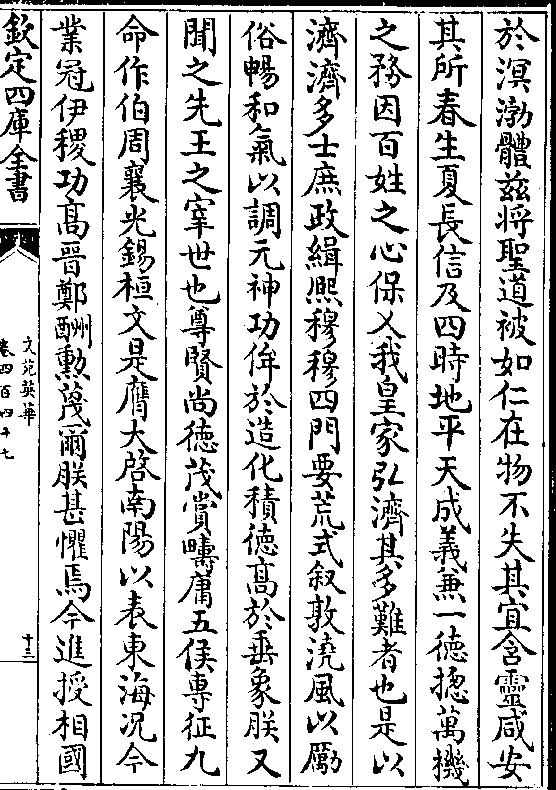 於溟渤體兹将聖道被如仁在物不失其宜含靈咸安
其所春生夏長信及四時地平天成義兼一徳揔萬機
之務因百姓之心保乂我皇家弘濟其多難者也是以
濟濟多士庶政緝熈穆穆四門要荒式叙敦澆風以勵
俗暢和氣以調元神功侔於造化積徳髙於垂象朕又
聞之先王之宰世也尊賢尚徳茂賞疇庸五侯專征九
命作伯周襄光錫桓文是膺大啓南陽以表東海况今
業冠伊稷功髙晉鄭酬勲蔑爾朕甚懼焉今進授相國
欽定四庫全書
文苑英華
卷四百四十七
十三